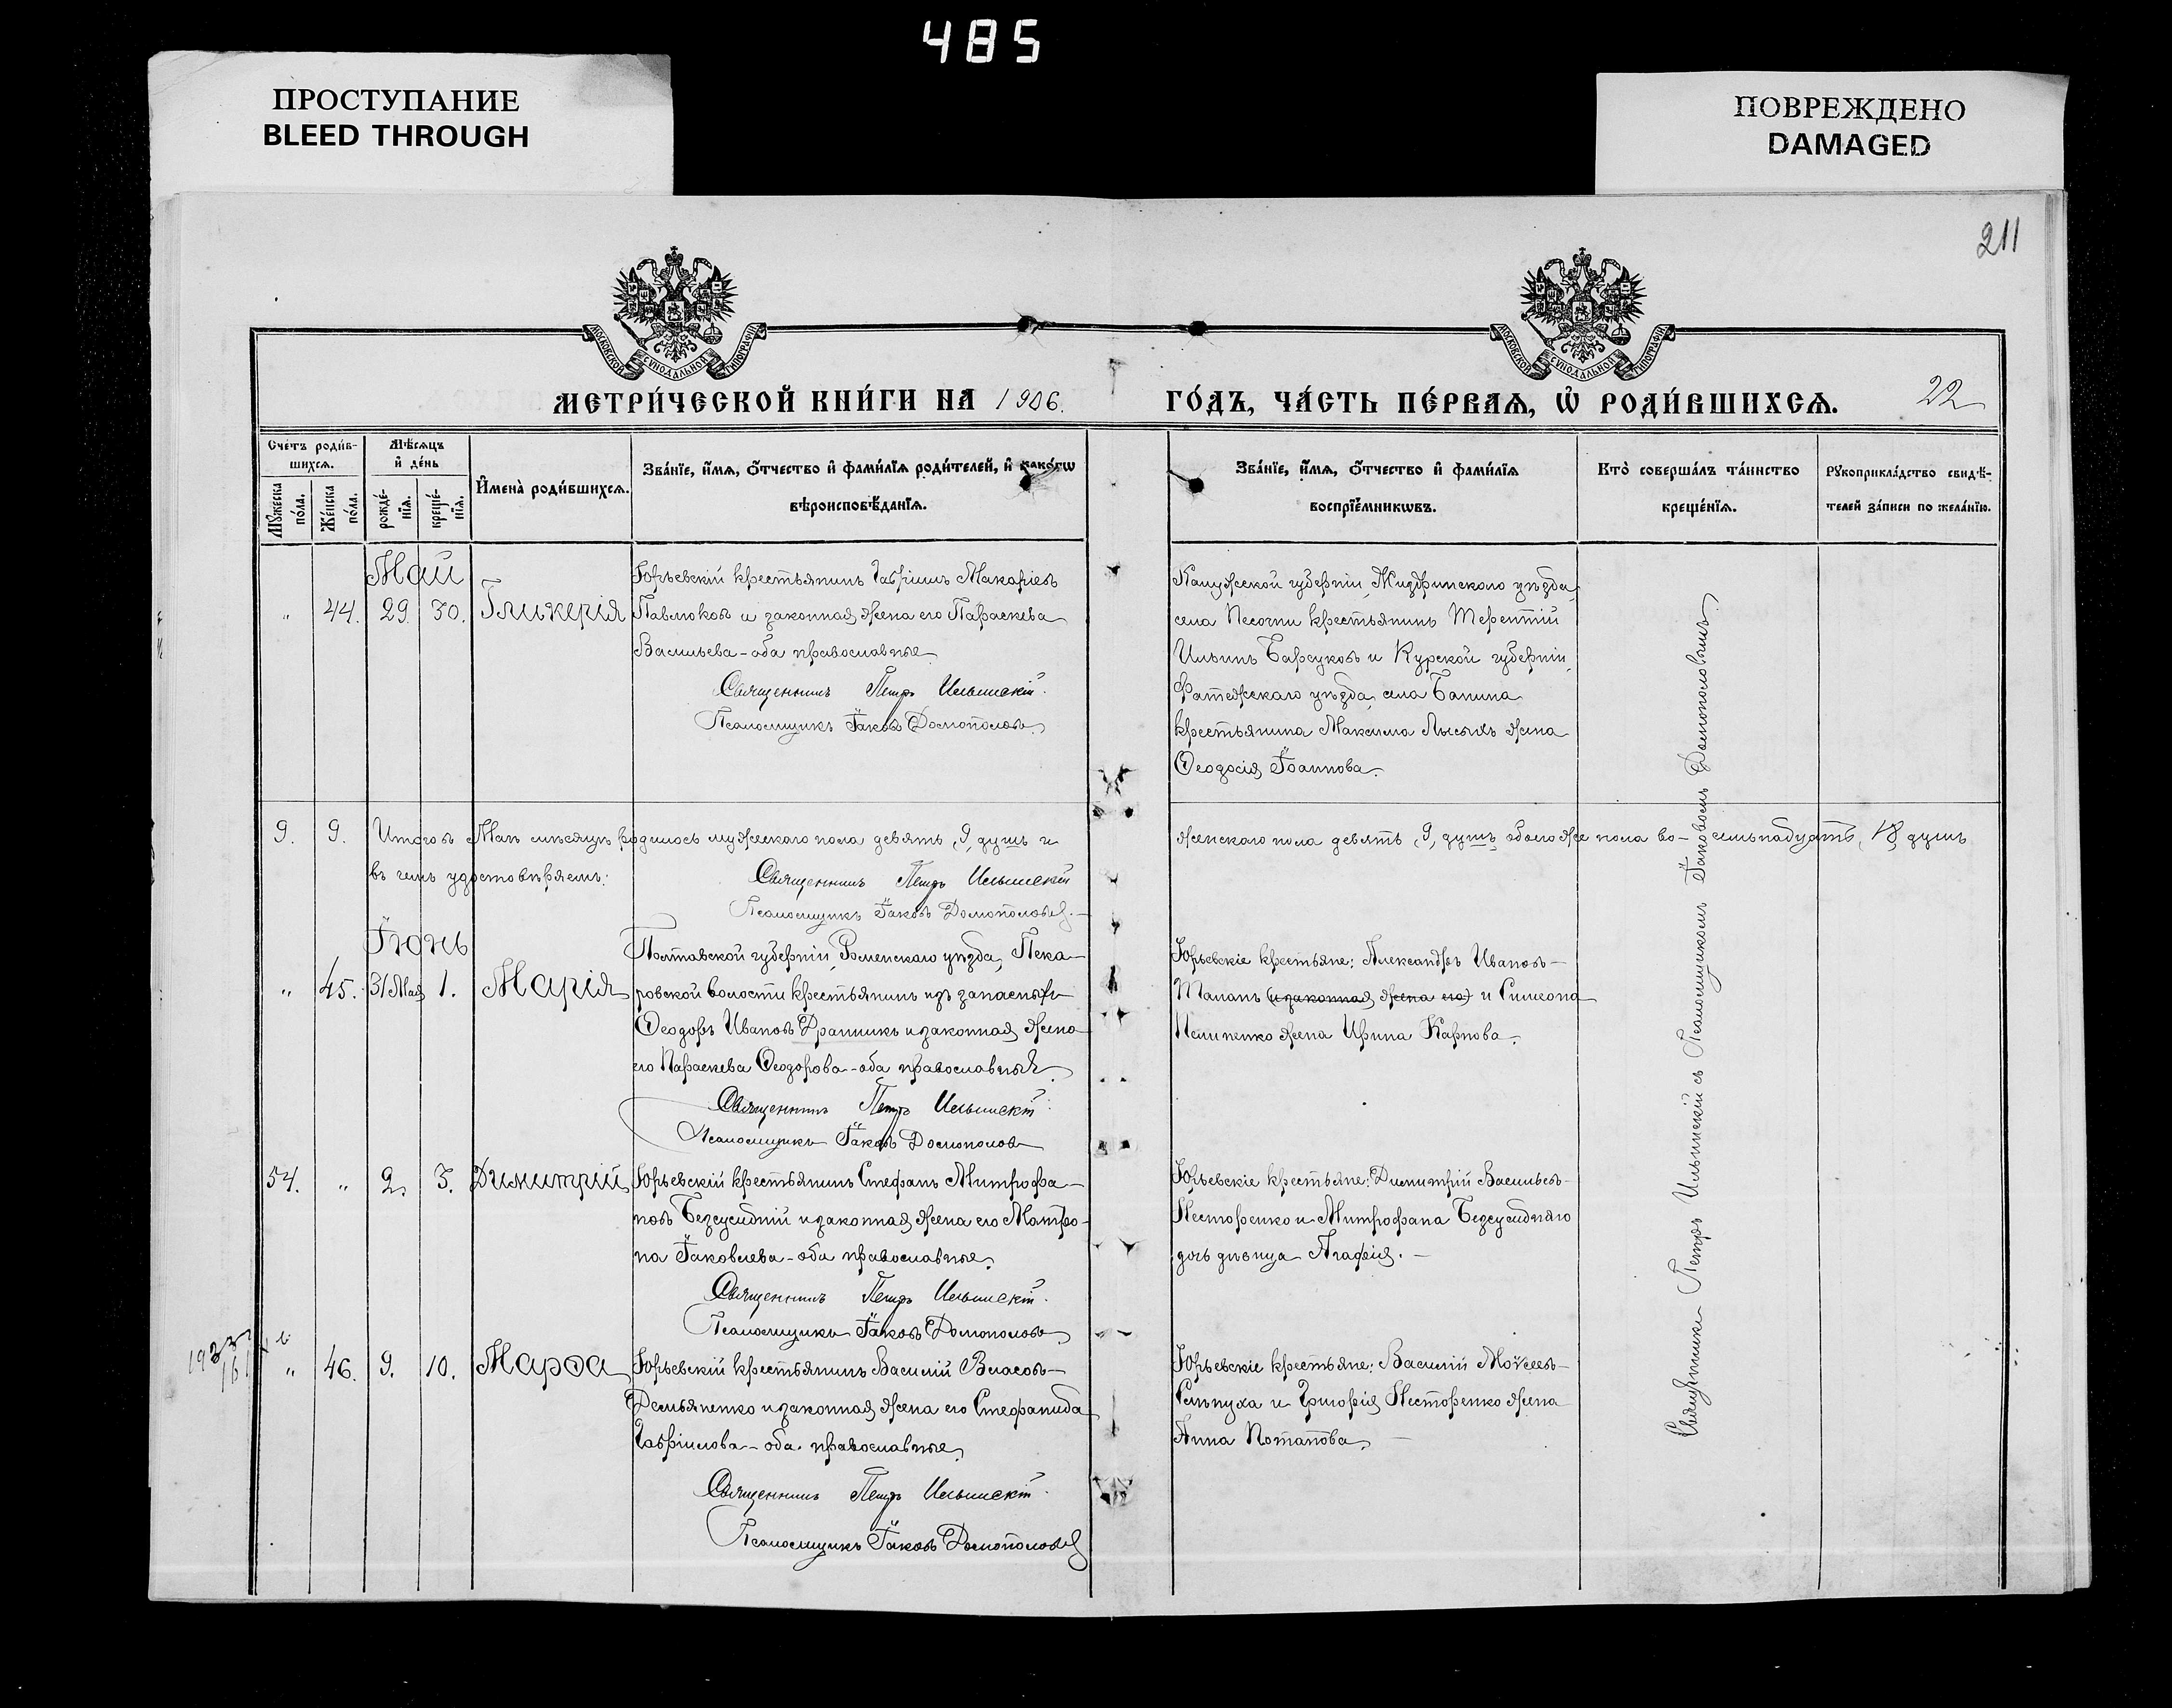 485
ПРОСТУПАНИЕ
BLEED THROUGH
ПОВРЕЖДЕНО
DAMAGED
211
МОСКОВСКОЙ СѴНОДАЛЬНОЙ ТИПОГРАФІИ
МОСКОВСКОЙ СѴНОДАЛЬНОЙ ТИПОГРАФІИ
МЕТРИ́ЧЕСКОЙ КНИ́ГИ НА 1906.
ГО́ДЪ, ЧА́СТЬ ПЕ́РВАѦ, Ѡ҆ РОДИ́ВШИХСѦ.
22
Сче́тъ роди́в-
шихсѧ.
Мꙋ́жеска по́ла.
Же́нска по́ла.
Мѣ́сѧцъ
и҆ де́нь
рожде́-
нїѧ.
креще́-
нїѧ.
И҆мена̀ роди́вшихсѧ.
Зва́нїе, и҆́мѧ, ѻ҆́тчество и҆ фами́лїѧ роди́телей, и҆ како́гѡ
вѣроисповѣ́данїѧ.
Зва́нїе, и҆́мѧ, ѻ҆́тчество и҆ фами́лїѧ
воспрїе́мникѡвъ.
Кто̀ соверша́лъ та́инство
креще́нїѧ.
Рꙋкоприкла́дство свидѣ́-
телей за́писи по жела́нїю.
Май
„ 44. 29. 30. Гликерія
Юрьевскій крестьянинъ Гавріилъ Макаріевъ
Павлюковъ и законная жена его Параскева
Васильева - оба православные
Священникъ Петръ Ильинскій.
Псаломщикъ Іаковъ Домополовъ.
Калужской губерніи, Жиздринскаго уѣзда,
села Песочни крестьянинъ Терентій
Ильинъ Барсуковъ и Курской губерніи,
Фатежскаго уѣзда, села Банина
крестьянина Максима Лысыхъ жена
Ѳеодосія Іоаннова.
9. 9. Итого въ Маѣ мѣсяцѣ родилось мужескаго пола девять, 9, душъ и
женскаго пола девять, 9, душъ, обоего же пола во- семьнадцать, 18, душъ
въ чемъ удостовѣряемъ:
Священникъ Петръ Ильинскій
Псаломщикъ Іаковъ Домополовъ.
Іюнь
„ 45. 31 Мая 1. Марія
Полтавской губерніи, Роменскаго уѣзда, Пека-
ровской волости крестьянинъ изъ запасныхъ
Ѳеодоръ Ивановъ Драникъ и законная жена
его Параскева Ѳеодорова - оба православныя.
Священникъ Петръ Ильинскій.
Псаломщикъ Іаковъ Домополовъ
Юрьевскіе крестьяне: Александръ Ивановъ -
Таланъ (и законная жена его) и Симеона
Пелипенко жена Ирина Карпова.
54. „ 2. 3. Димитрій
Юрьевскій крестьянинъ Стефанъ Митрофа-
новъ Безсуидній и законная жена его Матро-
на Іаковлева - оба православные.
Священникъ Петръ Ильинскій.
Псаломщикъ Іаковъ Домополовъ
Юрьевскіе крестьяне: Димитрій Васильевъ -
Нестеренко и Митрофана Безсуидняго
дочь дѣвица Агафія. -
„ 46. 9. 10. Марѳа
Юрьевскій крестьянинъ Василій Власовъ -
Демьяненко и законная жена его Стефанида
Гавріилова - оба православные.
Священникъ Петръ Ильинскій.
Псаломщикъ Іаковъ Домополовъ
Юрьевскіе крестьяне: Василій Моѵсеевъ -
Сильпуха и Григорія Нестеренко жена
Анна Потапова. -
Священникъ Петръ Ильинскій съ Псаломщикомъ Іаковомъ Домополовымъ.